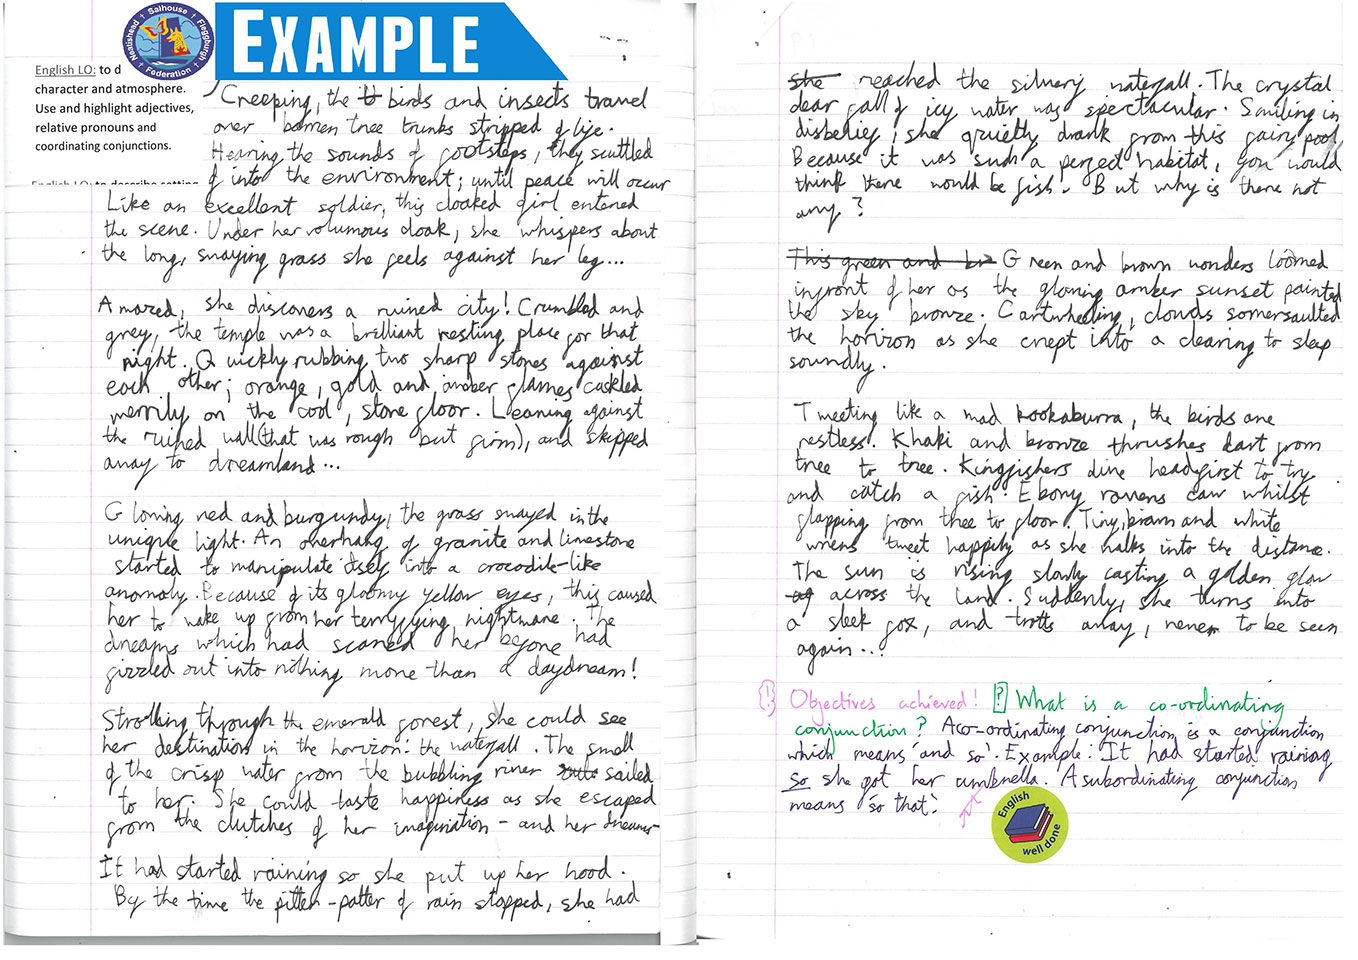 Neatishead Salhouse Fleggburgh
Federation
EXAMPLE
English LO: to d
character and atmosphere.
Use and highlight adjectives,
relative pronouns and
coordinating conjunctions.
English LO: to describe setting
Creeping, the birds and insects travel
over barren tree trunks stripped of life.
Hearing the sounds of footsteps, they scuttled
of into the environment; until peace will occur
Like an excellent soldier, this cloaked girl entered
the scene. Under her volumous cloak, she whispers about
the long, swaying grass she feels against her leg...
Amazed, she discovers a ruined city! Crumbled and
grey, the temple was a brilliant resting place for that
night. Quickly rubbing two sharp stones against
each other; orange, gold and amber flames cackled
merrily on the cool, stone floor. Leaning against
the ruined wall (that was rough but firm), and skipped
away to dreamland...
Glowing red and burgundy, the grass swayed in the
unique light. An overhang of granite and limestone
started to manipulate itself into a crocodile-like
anomoly. Because of its gloomy yellow eyes, this caused
her to wake up from her terryfying nightmare. The
dreams which had scared her before had
fizzled out into nothing more than a daydream!
Strolling through the emerald forest, she could see
her destination in the horizon: the waterfall. The smell
of the crisp water from the bubbling river sailed
to her. She could taste happiness as she escaped
from the clutches of her imagination - and her dreams-
It had started raining so she put up her hood.
By the time the pitter-patter of rain stopped, she had
she reached the silvery waterfall. The crystal
clear fall of icy water was spectacular. Smiling in
disbelief, she quietly drank from this fairy pool.
Because it was such a perfect habitat, you would
think there would be fish. But why is there not
any?
This green and br Green and brown wonders loomed
infront of her as the glowing amber sunset painted
the sky bronze. Cartwheeling, clouds somersaulted
the horizon as she crept into a clearing to sleep
soundly.
Tweeting like a mad kookaburra, the birds are
restless. Khaki and bronze thrushes dart from
tree to tree. Kingfishers dive headfirst to try
and catch a fish. Ebony ravens caw whilst
flapping from thee to floor. Tiny, brown and white
wrens tweet happily as she walks into the distance.
The sun is rising slowly casting a golden glow
across the land. Suddenly, she turns into
a sleek fox, and trotts away, never to be seen
again...
(!) Objectives achieved! [?] What is a co-ordinating
conjunction? A co-ordinating conjunction is a conjunction
which means 'and so'. Example: It had started raining
so she got her umbrella. A subordinating conjunction
means 'so that'.
English
well done